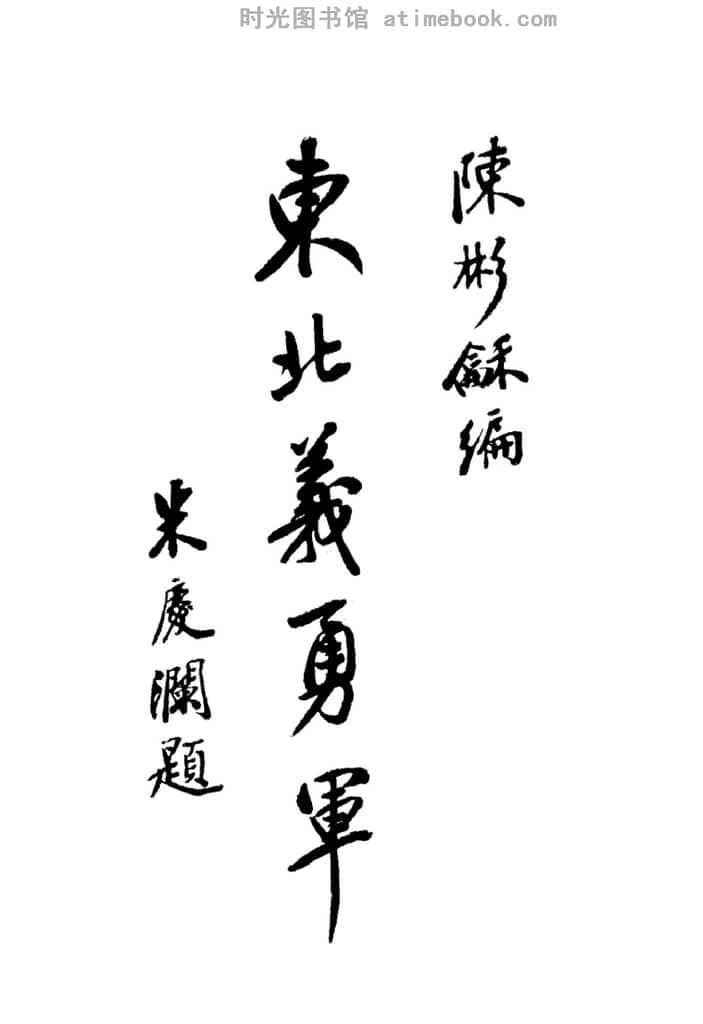 时光图书馆 atimebook.com
陳彬龢編
東北義勇軍
朱慶瀾題